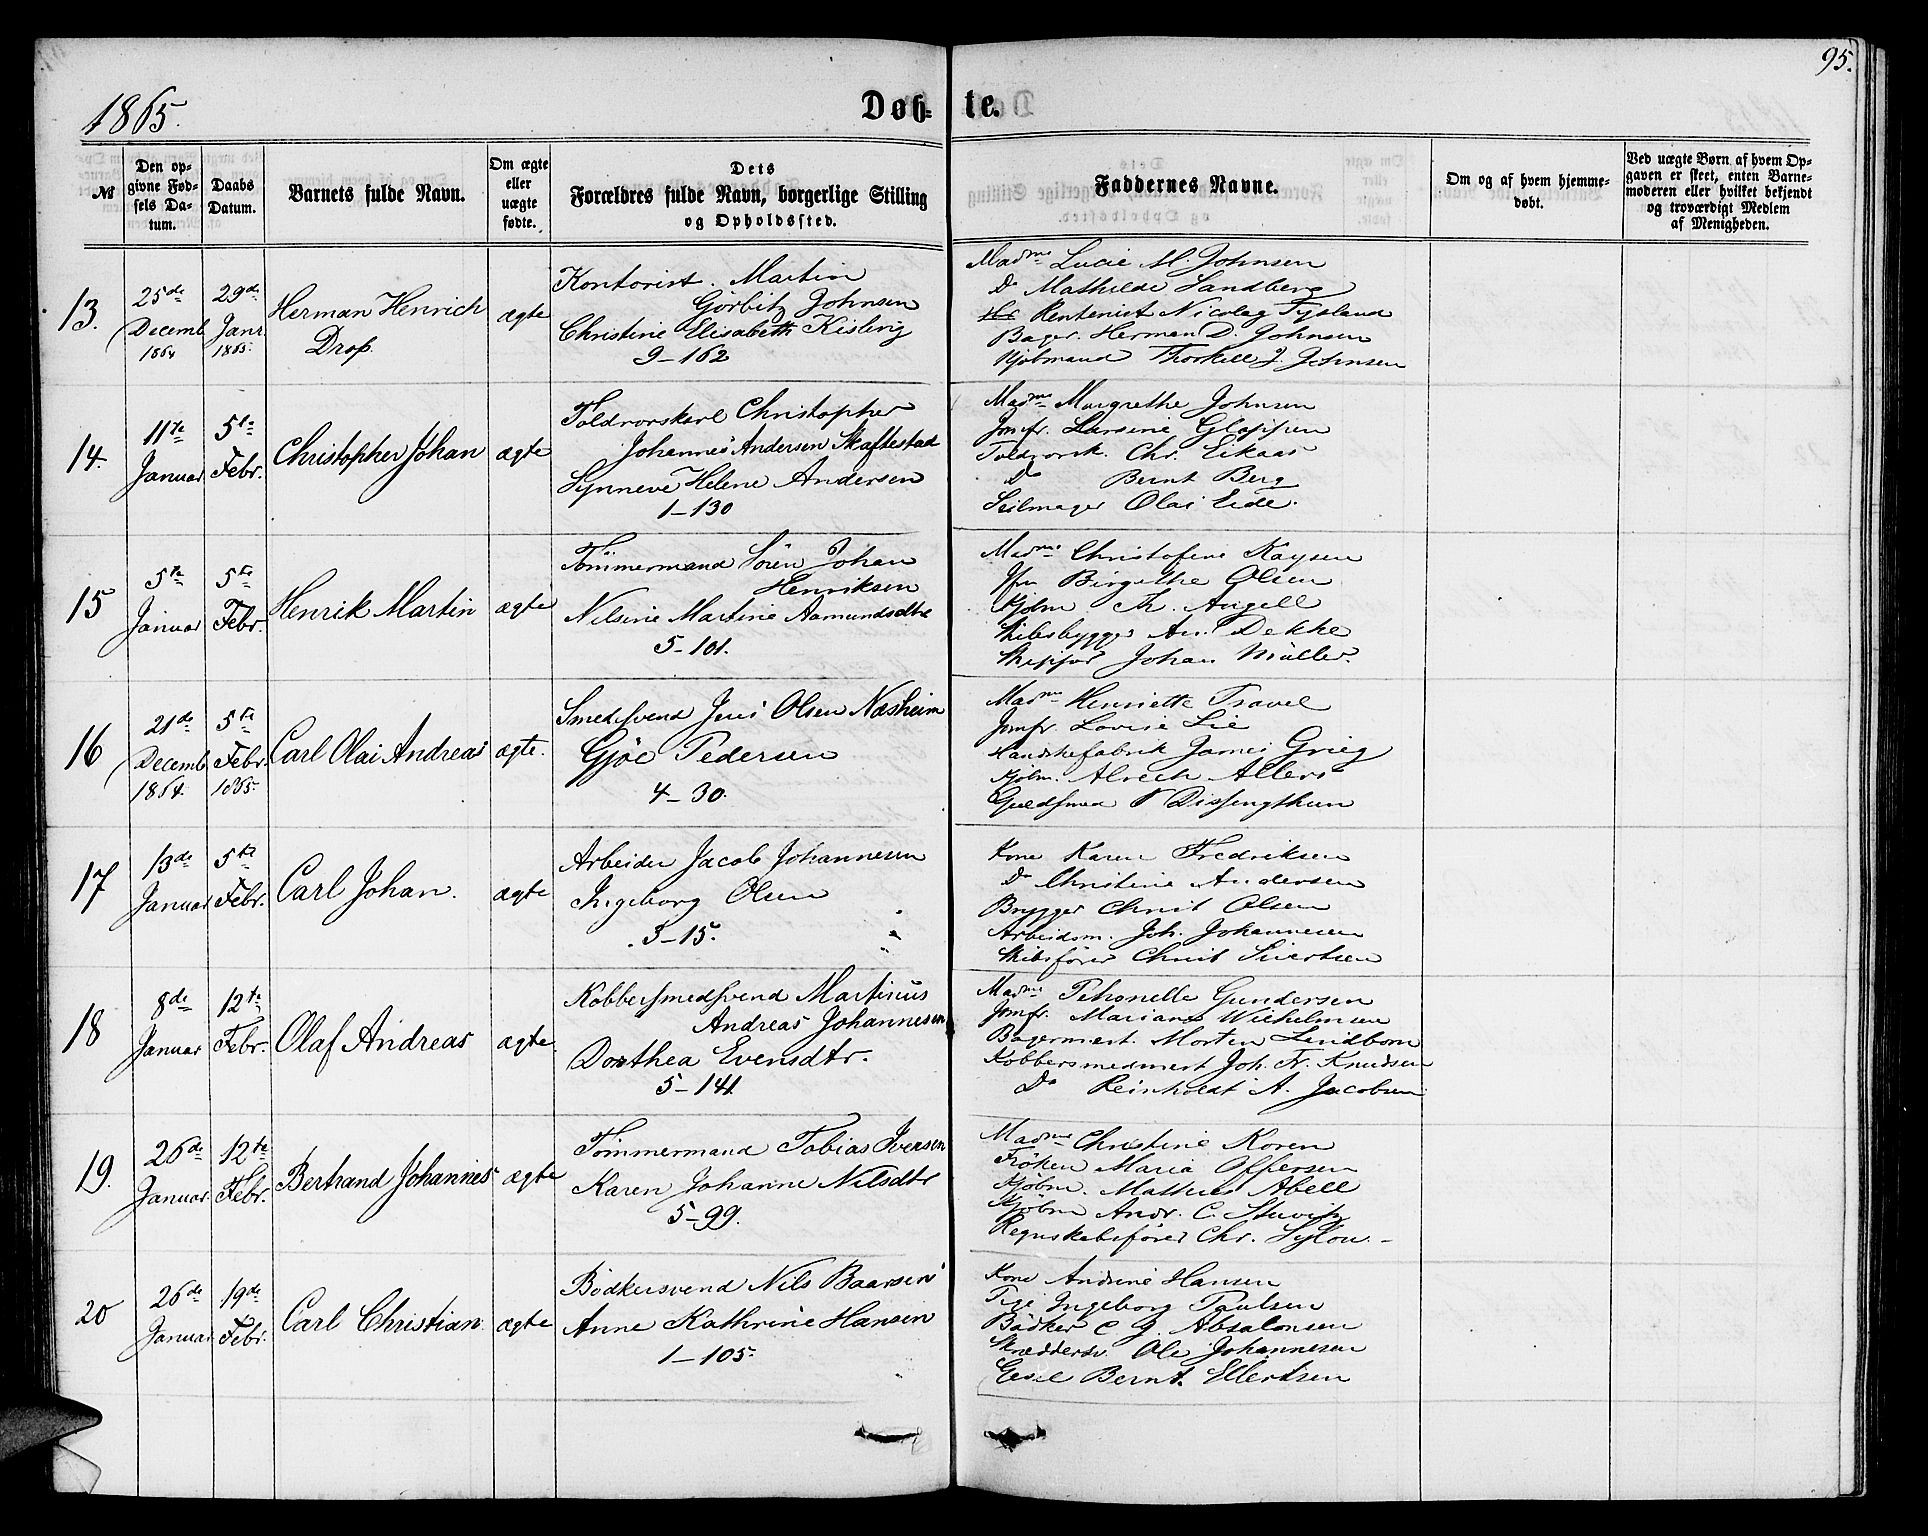 95.
1865.
Døb- te.
№
Den op-
givne Fød-
sels Da-
tum.
Daabs
Datum.
Barnets fulde Navn.
Om ægte
eller
uægte
fødte.
Dets
Forældres fulde Navn, borgerlige Stilling
og Opholdssted.
Faddernes Navne.
Om og af hvem hjemme-
døbt.
Ved uægte Børn af hvem Op-
gaven er skeet, enten Barne-
moderen eller hvilket bekjendt
og troværdigt Medlem
af Menigheden.
13.
25de
Decemb
1864
29de
Janr
1865.
Herman Henrich
Drop.
ægte
Kontorist. Martin
Gorbitz Johnsen
Christine Elisabeth Kisling
9-162
Madme Lucie M. Johnsen
Do Mathilde Sandberg
Rentenist Nicolay Fysland
Bager. Herman D. Johnsen
Kjøbmand Thorkell J. Johnsen
14.
11te
Januar
5te
Febr.
Christopher Johan
ægte
Toldrorskarl Christopher
Johannes Andersen Skaftestad
Synneve Helene Andersen
1-130
Madme Margrethe Johnsen
Jomfr. Larsine Gloppen
Toldrorsk. Chr. Eikaas
Do Bernt Berg
Seilmager Olai Eide.
15
5te
Januar
5te
Febr.
Henrik Martin
ægte
Tömmermand Sören Johan
Henriksen
Nilsine Martine Aamundsdtr
5-101.
Madme Christofine Kaysen
Jfru Birgithe Olsen
Kjøbm Th. Angell
Skibsbygger An. Dekke
Skipper Johan Müller.
16
21de
Decemb
1864.
5te
Febr.
1865.
Carl Olai Andreas
ægte.
Smedsvend Jens Olsen Næsheim
Gjöe Pedersen
4-30.
Madme Henriette Travel
Jomfr. Lovise Lie
Handskefabrik James Grieg
Kjøbm. Alrech Allers
Guldsmed P Dissingthun
17
13de
Januar
5te
Febr.
Carl Johan.
ægte
Arbeider Jacob Johannesen
Ingeborg Olsen
3-15.
Kone Karen Fredriksen
Do Christine Andersen
Brygger Christ Olsen
Arbeidsm. Joh. Johannesen
Skibsfører Christ Sivertsen
18
8de
Januar
12te
Febr.
Olaf Andreas
ægte.
Kobbersmedsvend Martinus
Andreas Johannesen
Dorthea Evensdtr.
5-141.
Madme Petronelle Gundersen
Jomfr. Mariane Wilhelmsen
Bagermest. Morten Lindbom
Kobbersmedmest Joh. Fr. Knudsen
Do Reinholdt A. Jacobsen
19.
26de
Januar
12te
Febr.
Bertrand Johannes
ægte
Tömmermand Tobias Iversen
Karen Johanne Nilsdtr
5-99.
Madme Christine Koren
Fröken Maria Offersen
Kjöbm. Mathias Abell
Kjöbm Andr. C. Stuwitz
Regnskabsfører Chr. Sylow.-
20
26de
Januar
19de
Febr.
Carl Christian
ægte
Bödkersvend Nils Baarsen
Anne Kathrine Hansen
1-105.
Kone Andrine Hansen
Pige Ingeborg Paulsen
Bödker C J. Absalonsen
Skræddersv. Ole Johannesen
Bernt. Ellertsen